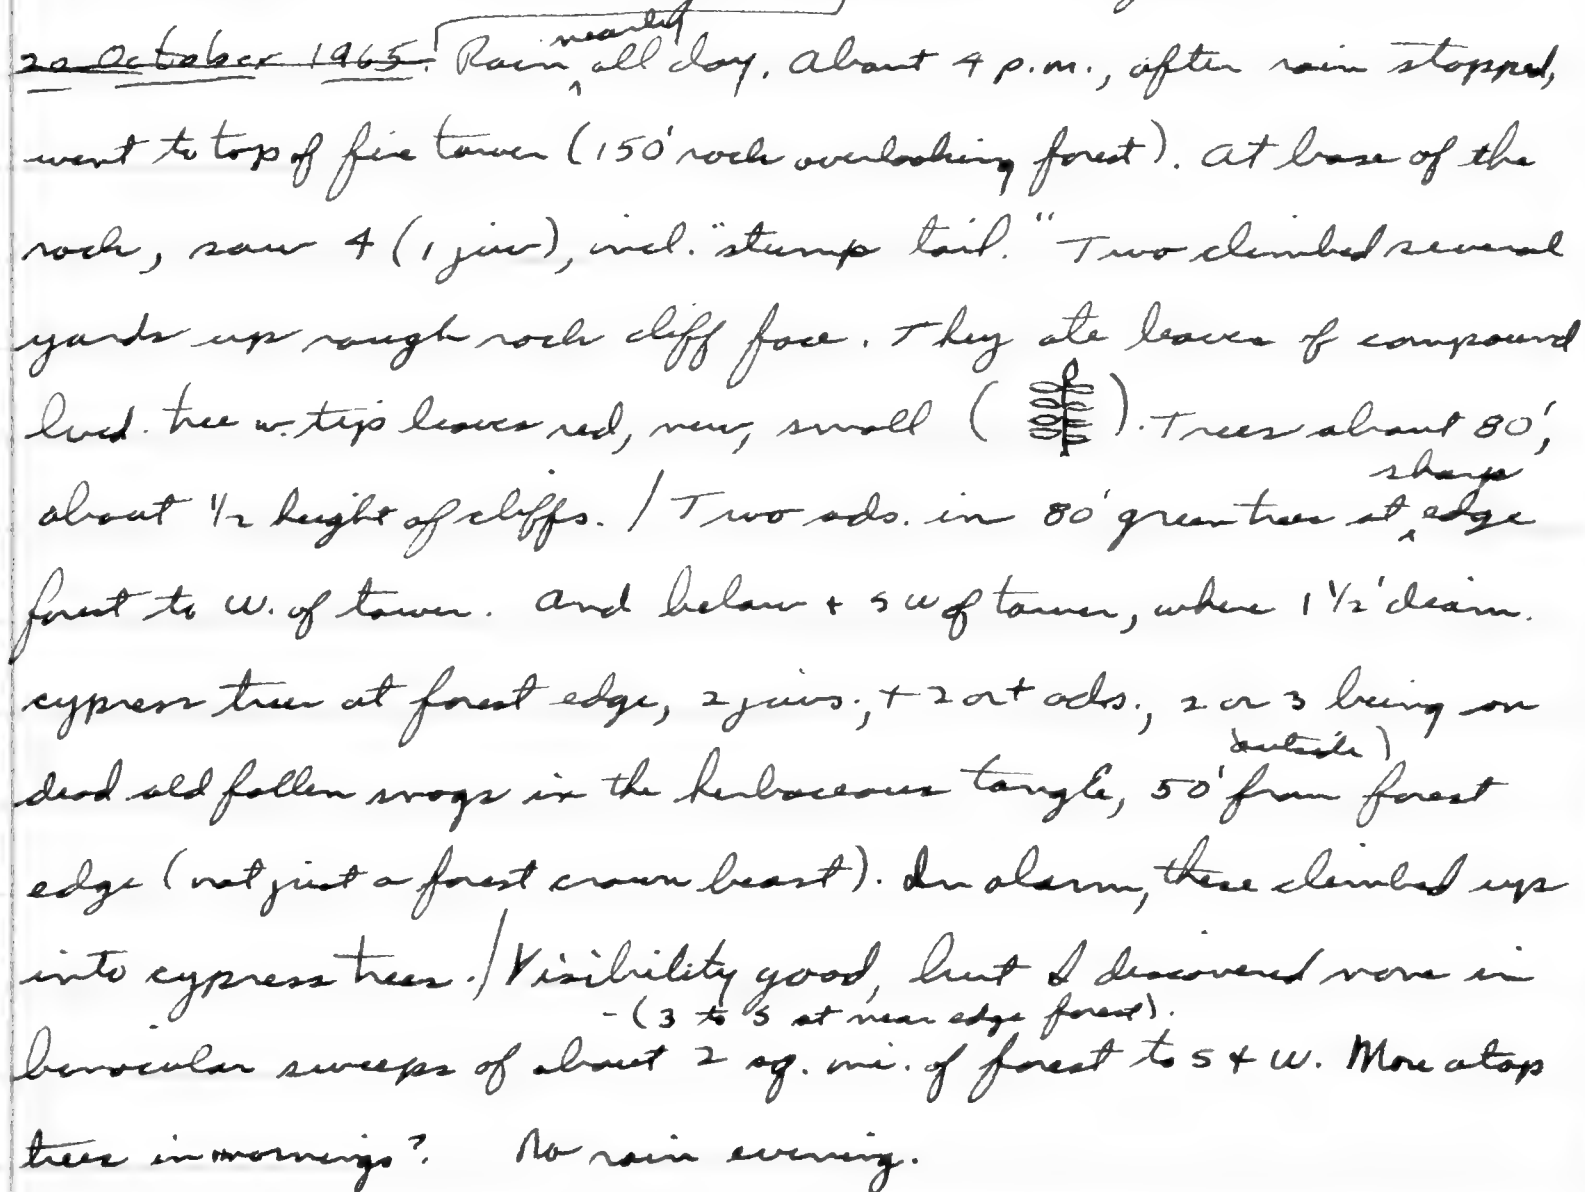 20 October 1965. Rain nearly all day. About 4 p.m., after rain stopped,
went to top of fire tower (150' rock overlooking forest). At base of the
rock, saw 4 (1 juv), incl. "stump tail." Two climbed several
yards up rough rock cliff face. They ate leaves of compound
lvd. tree w. tip leaves red, new, small ( ). Trees about 80',
about 1/2 height of cliffs. / Two ads. in 80' green trees at sharp edge
forest to W. of tower. And below + SW of tower, where 1 1/2' diam.
cypress trees at forest edge, 2 juvs., + 2 or + ads., 2 or 3 being on
dead old fallen snags in the herbaceous tangle, 50' from (outside) forest
edge (not just a forest crown beast). In alarm, these climbed up
into cypress trees. / Visibility good, but I discovered none in
- (3 to 5 at near edge forest).
binocular sweeps of about 2 sq. mi. of forest to S + W. More atop
trees in mornings? No rain evening.